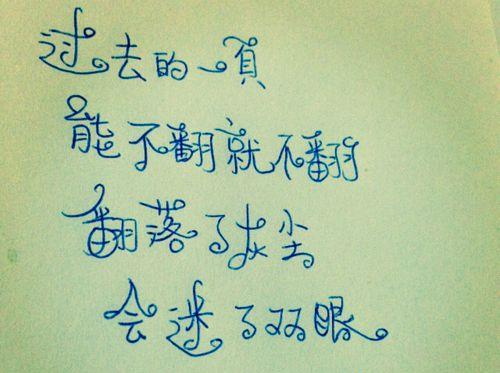 过去的一頁
能不翻就不翻
翻落了灰尘
会迷了双眼。